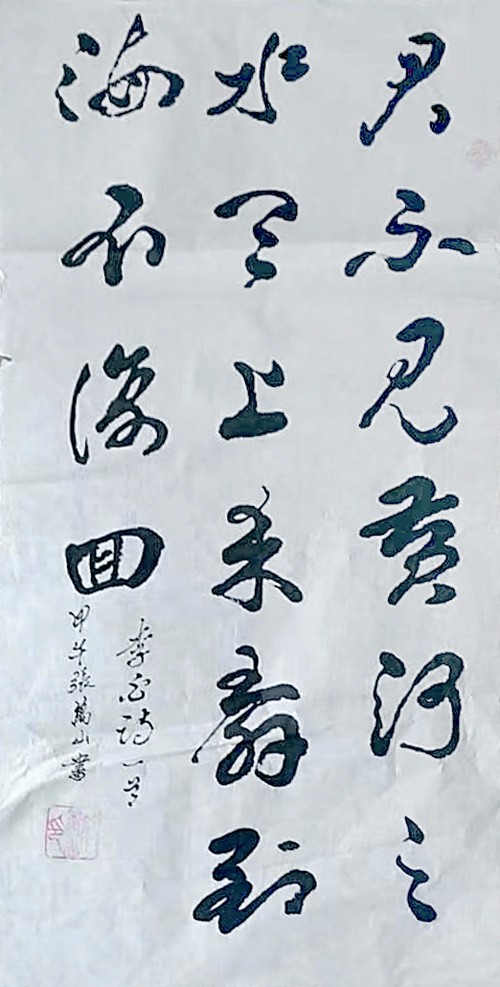 君不见黄河之
水天上来奔到
海不復回
李白诗一首
甲午張萬山書